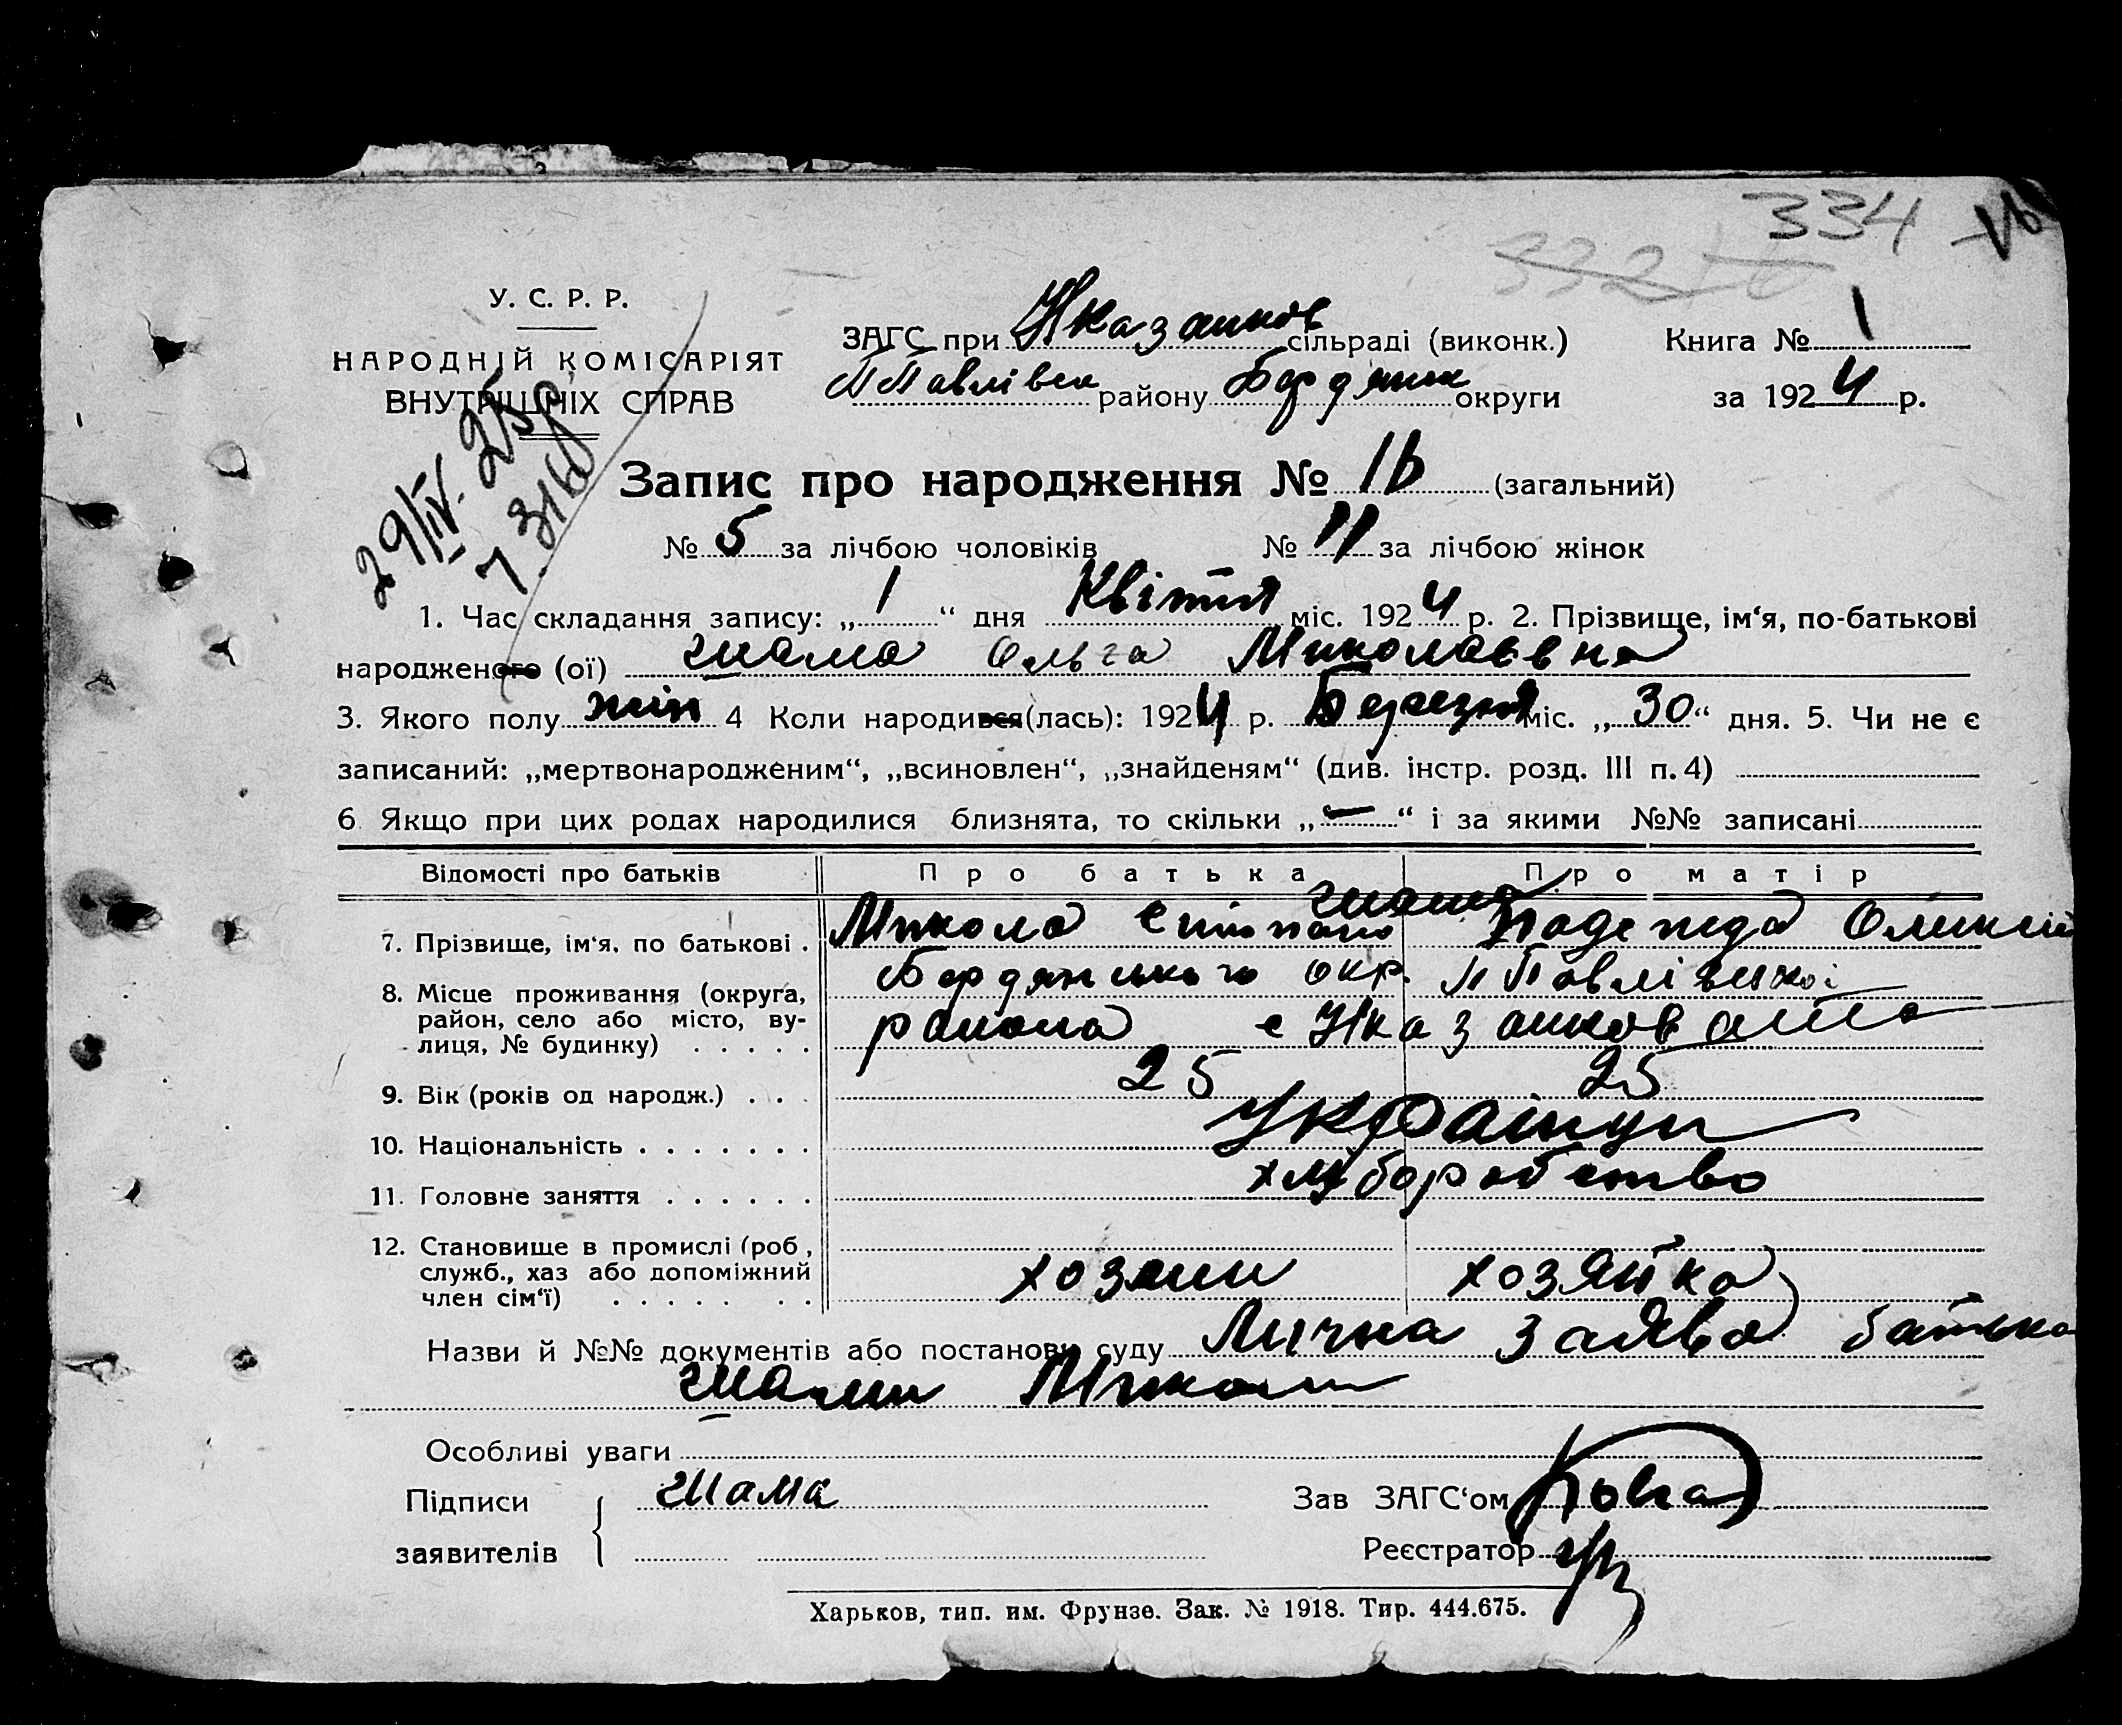 334
У. С. Р. Р.
НАРОДНІЙ КОМІСАРІЯТ
ВНУТРІШНІХ СПРАВ
ЗАГС при сільраді (виконк.)
ППавлівск району Бердянск округи
Книга № 1
за 1924 р.
29/IV. 25р
Запис про народження № 16 (загальний)
№ 5 за лічбою чоловіків № 11 за лічбою жінок
1. Час складання запису: „ 1 “ дня Квітня міс. 1924 р. 2. Прізвище, ім'я, по-батькові
народженого (ої) Шама Ольга Миколаєвна
3. Якого полу жін 4 Коли народився(лась): 1924 р. Березня міс. „ 30 “ дня. 5. Чи не є
записаний: „мертвонародженим“, „всиновлен“, „знайденям“ (див. інстр. розд. III п. 4)
6. Якщо при цих родах народилися близнята, то скільки „ — “ і за якими №№ записані
Відомості про батьків Про батька Про матір
7. Прізвище, ім'я, по батькові . Шама Микола Надежда
8. Місце проживання (округа, Бердянського окр. ППавлівської
район, село або місто, ву-
лиця, № будинку) . . . . . района с
9. Вік (років од народж.) . . . 25 25
10. Національність . . . . . . . Українци
11. Головне заняття . . . . . . хліборобство
12. Становище в промислі (роб.,
служб., хаз або допоміжний
член сім'ї) . . . . . . . хозяин хозяйка
Назви й №№ документів або постанови суду Лична заява батька
Шами Миколи
Особливі уваги
Підписи Шама Зав ЗАГС'ом
заявителів Реєстратор
Харьков, тип. им. Фрунзе. Зак. № 1918. Тир. 444.675.